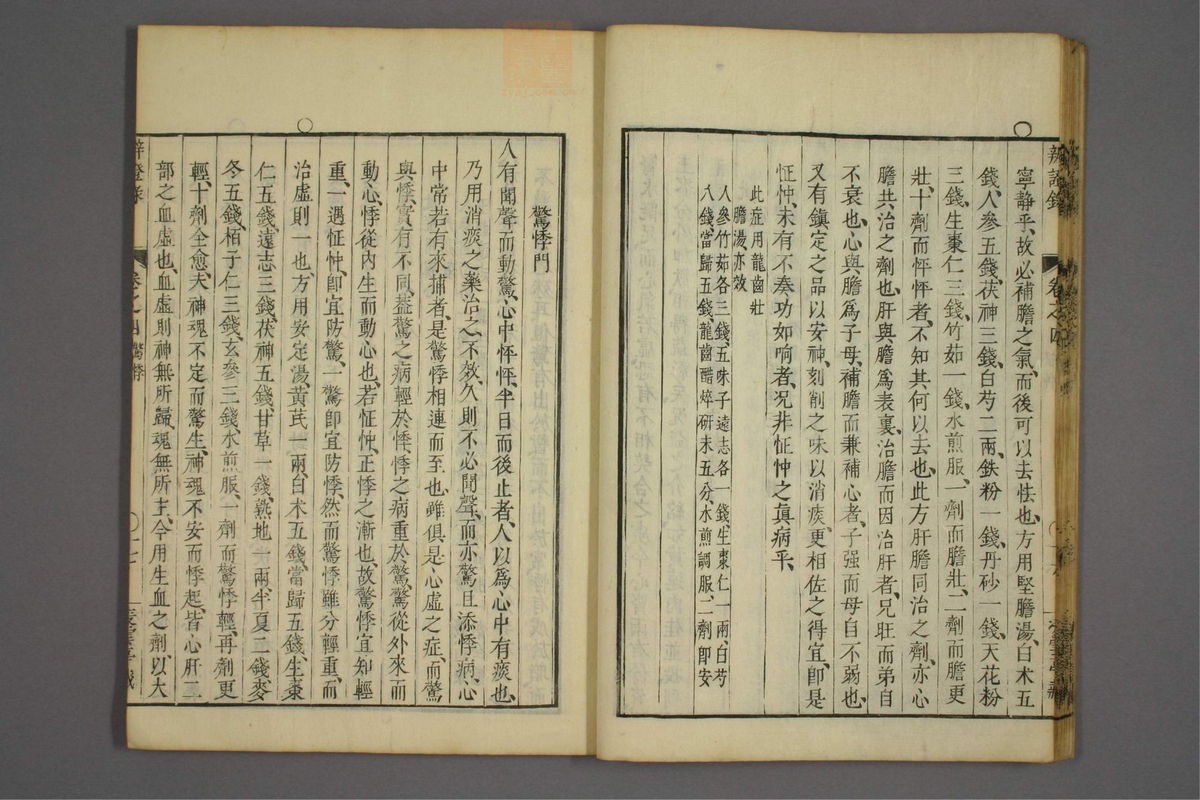 辨證錄 卷之四
寧静乎、故必補膽之氣、而後可以去怯也、方用堅膽湯、白术五
錢、人參五錢、茯神三錢、白芍二兩、鉄粉一錢、丹砂一錢、天花粉
三錢、生棗仁三錢、竹茹一錢、水煎服、一劑而膽壯、二劑而膽更
壯、十劑而怦怦者、不知其何以去也、此方肝膽同治之劑、亦心
膽共治之劑也、肝與膽爲表裏、治膽而因治肝者、兄旺而弟自
不衰也、心與膽爲子母、補膽而兼補心者、子强而母自不弱也、
又有鎮定之品以安神、刻削之味以消痰、更相佐之得宜、卽是
怔忡、未有不奏功如响者、况非怔忡之眞病乎、
此症用龍齒壯
膽湯、亦效
人參竹茹各三錢、五味子遠志各一錢、生棗仁一兩、白芍
八錢、當歸五錢、龍齒醋焠研末五分、水煎調服、二劑卽安
驚悸門
人有聞聲而動驚、心中怦怦、半日而後止者、人以爲心中有痰也、
乃用消痰之藥治之、不效、久則不必聞聲、而亦驚且添悸病、心
中常若有來捕者、是驚悸相連而至也、雖俱是心虛之症、而驚
與悸實有不同、蓋驚之病輕於悸、悸之病重於驚、驚從外來而
動心、悸從内生而動心也、若怔忡、正悸之漸也、故驚悸宜知輕
重、一遇怔忡、卽宜防驚、一驚卽宜防悸、然而驚悸雖分輕重、而
治虛則一也、方用安定湯、黃芪一兩、白术五錢、當歸五錢、生棗
仁五錢、遠志三錢、茯神五錢、甘草一錢、熟地一兩、半夏二錢、麥
冬五錢、栢子仁三錢、玄參三錢、水煎服、一劑而驚悸輕、再劑更
輕、十劑全愈、夫神魂不定而驚生、神魂不安而悸起、皆心肝二
部之血虛也、血虛則神無所歸、魂無所主、今用生血之劑、以大
辨證錄 卷之四